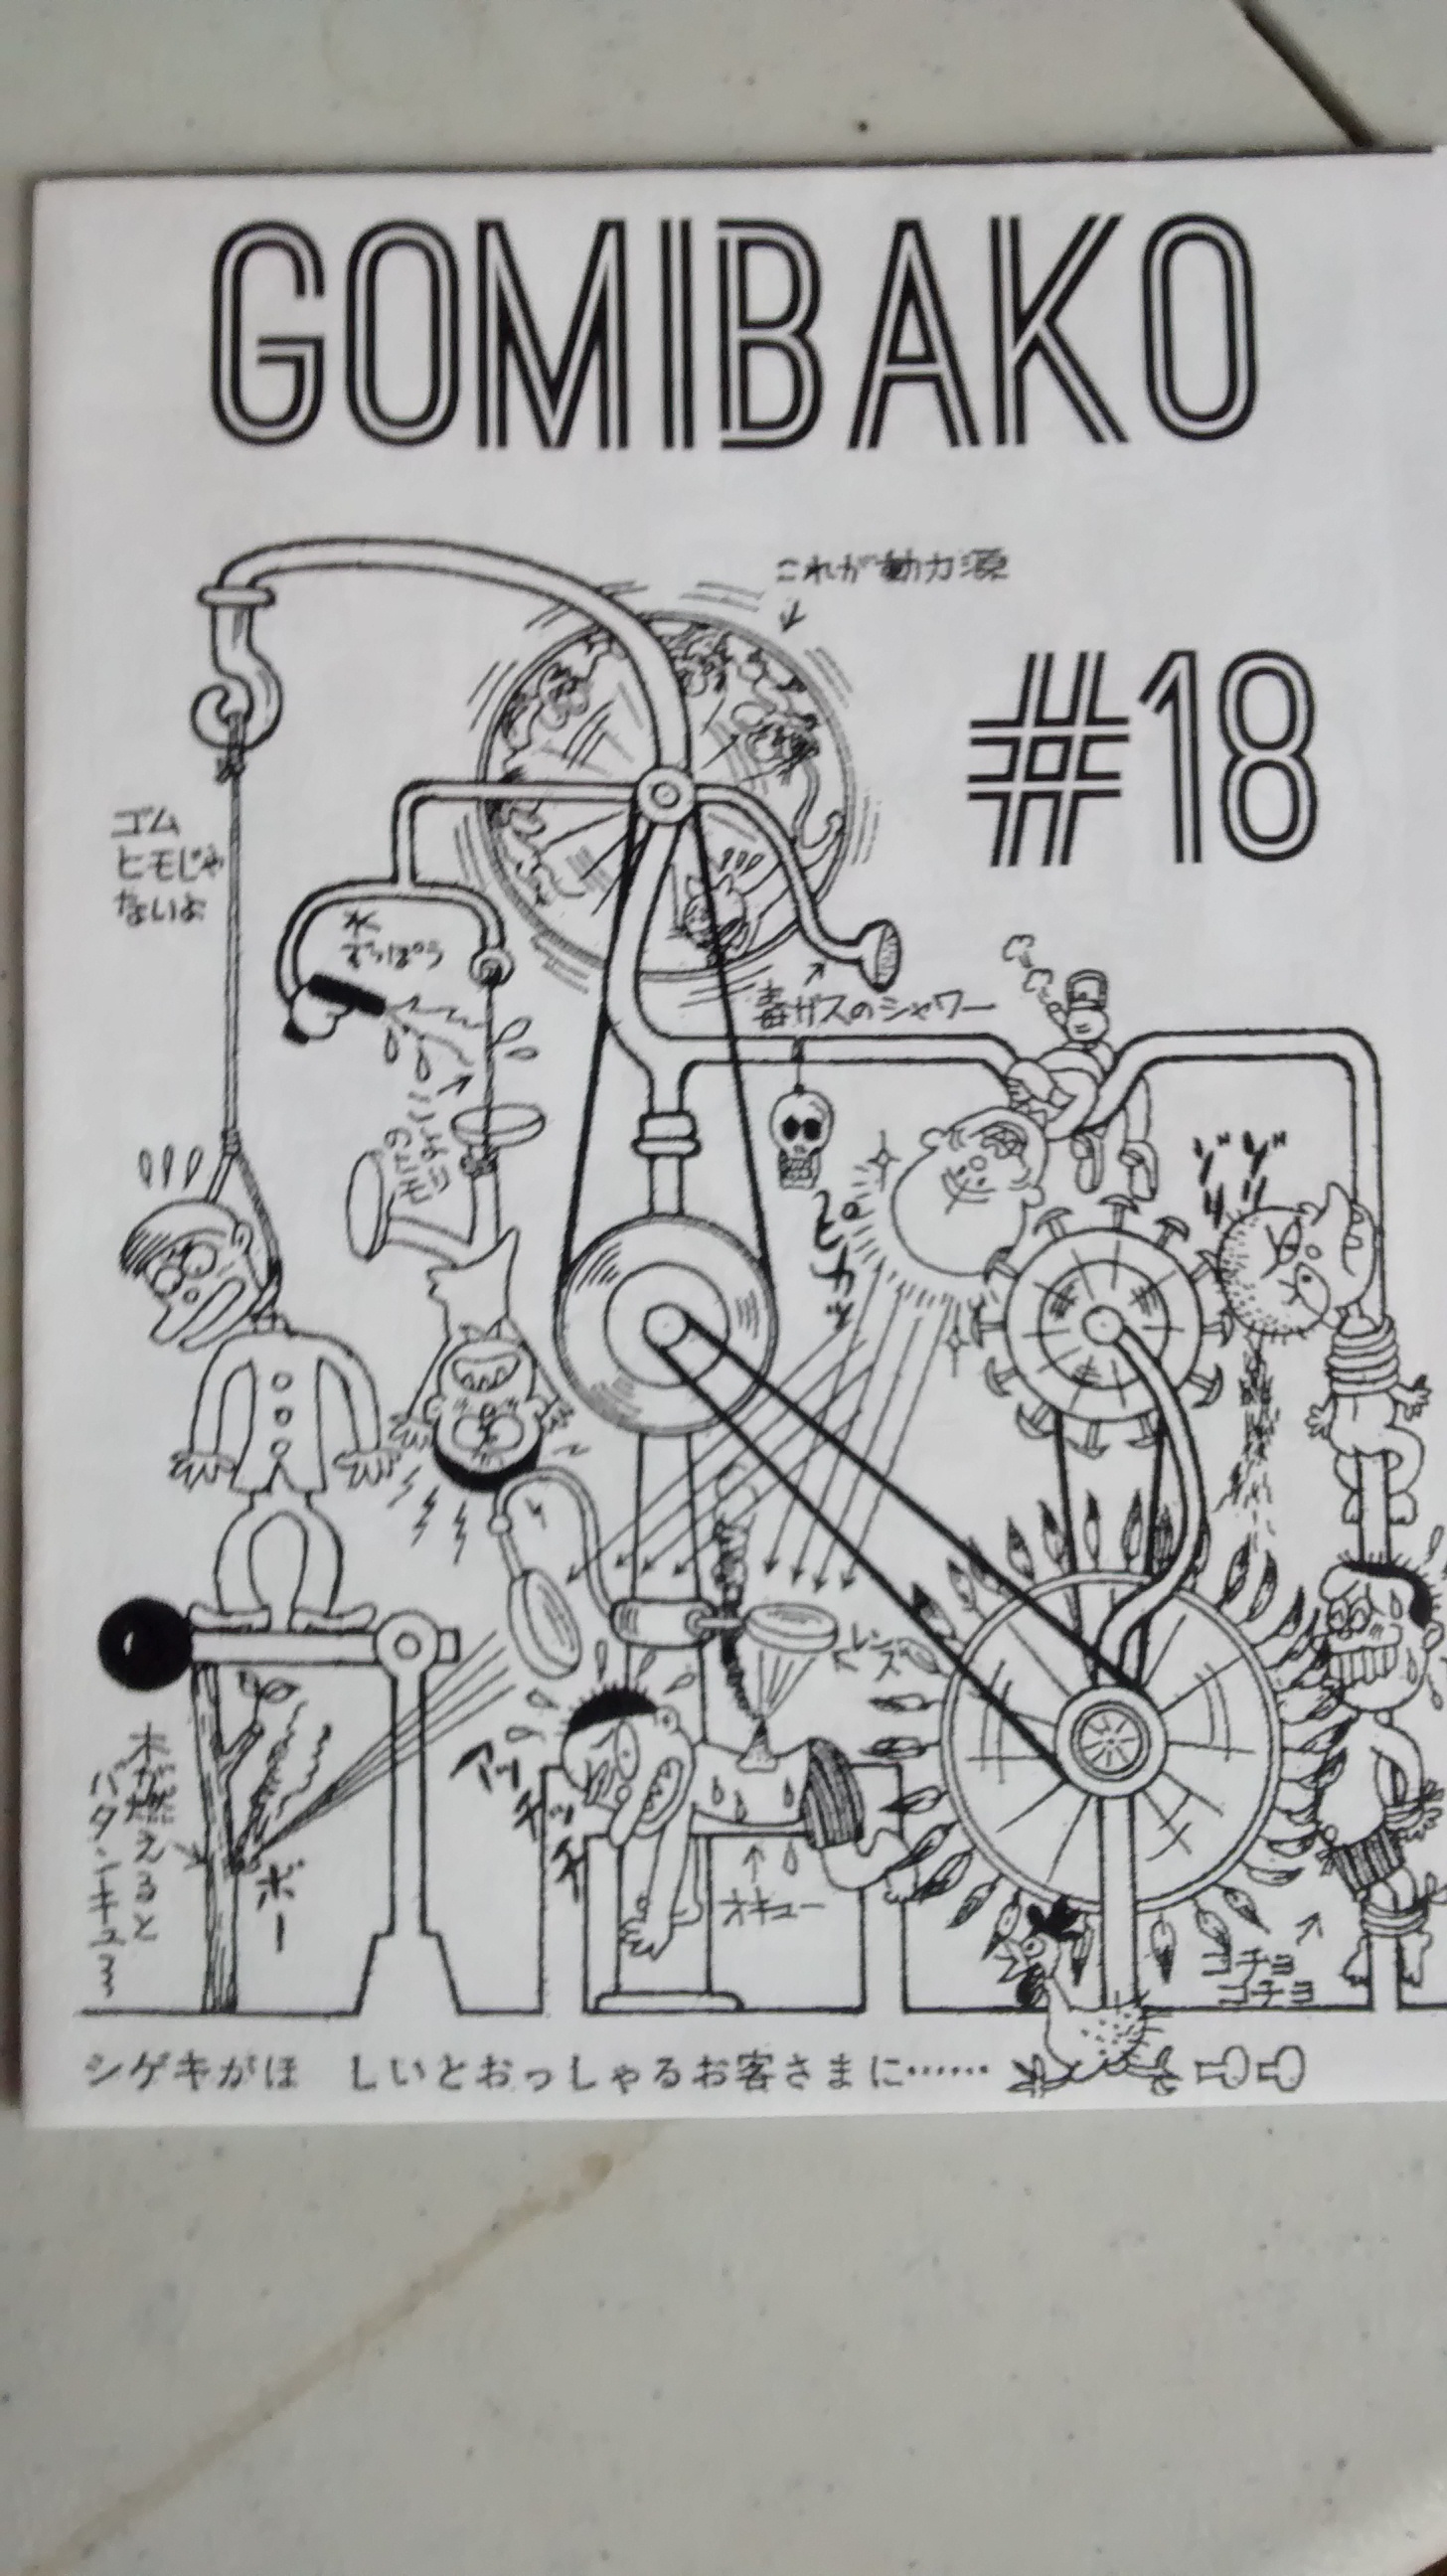 GOMIBAKO
これが動力源
#18
ゴム
ヒモじゃ
ないよ
水
でっぽう
毒ガスのシャワー
ピカッ
レンズ
アッチッチ
木が燃えると
バタンキュー
ボー
オキュー
コチョ
コチョ
シゲキがほ しいとおっしゃるお客さまに……